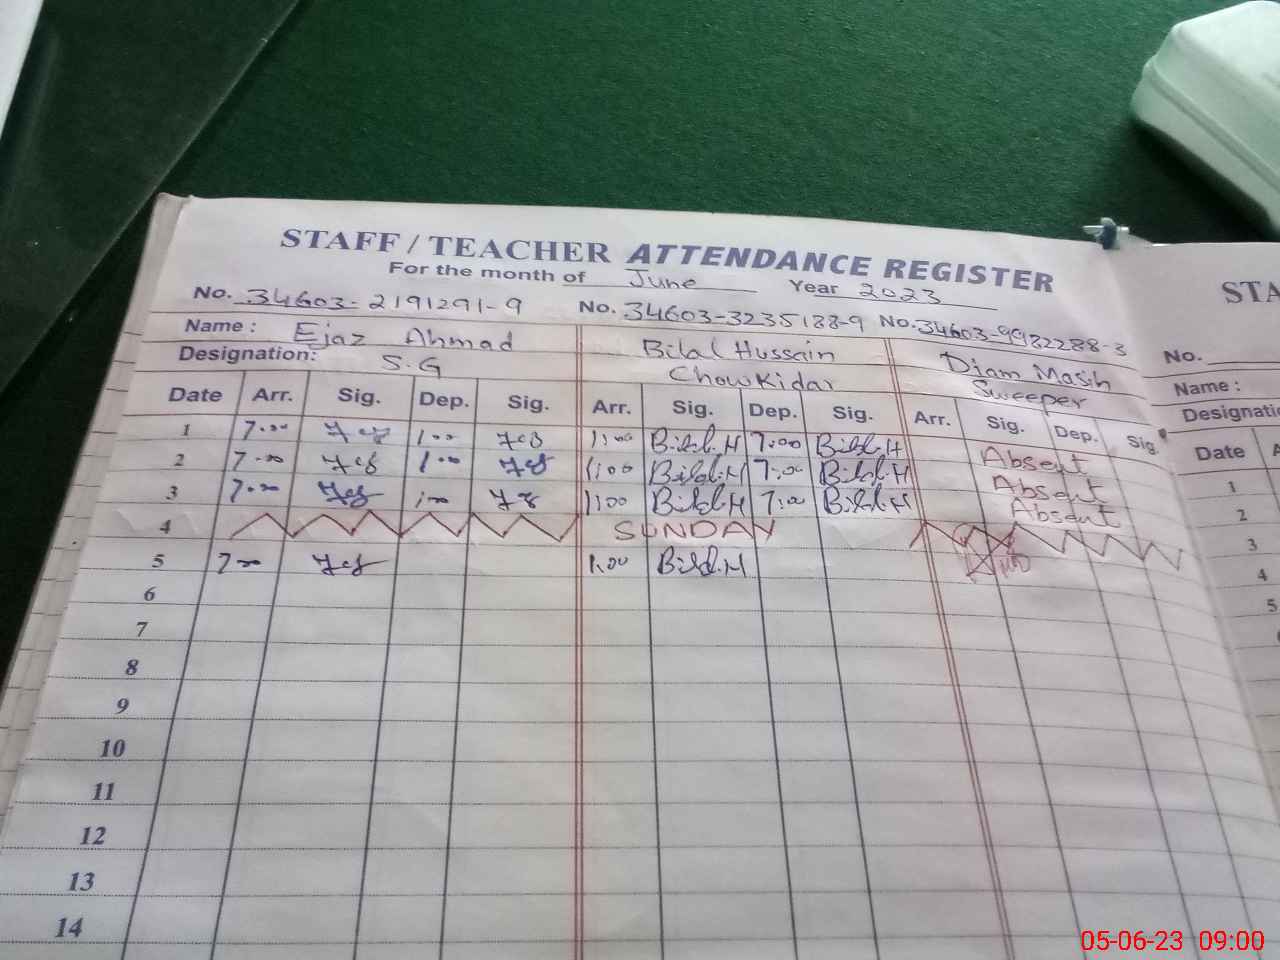 STAFF / TEACHER ATTENDANCE REGISTER
For the month of June Year 2023
No. 34603-2191291-9 No. 34603-3235188-9 No. 34603-9982288-3
Name : Ejaz Ahmad Bilal Hussain Diam Masih
Designation: S.G Chowkidar Sweeper
Date Arr. Sig. Dep. Sig. Arr. Sig. Dep. Sig. Arr. Sig. Dep. Sig.
1 7.00 1.00 1100 Bilal.H 7:00 Bilal.H Absent
2 7.00 1.00 1100 Bilal.H 7:00 Bilal.H Absent
3 7.00 1.00 1100 Bilal.H 7:00 Bilal.H Absent
4 SUNDAY
5 7.00 1.00 Bilal.H
6
7
8
9
10
11
12
13
14
STA
No.
Name :
Designati
Date A
1
2
3
4
5
05-06-23 09:00